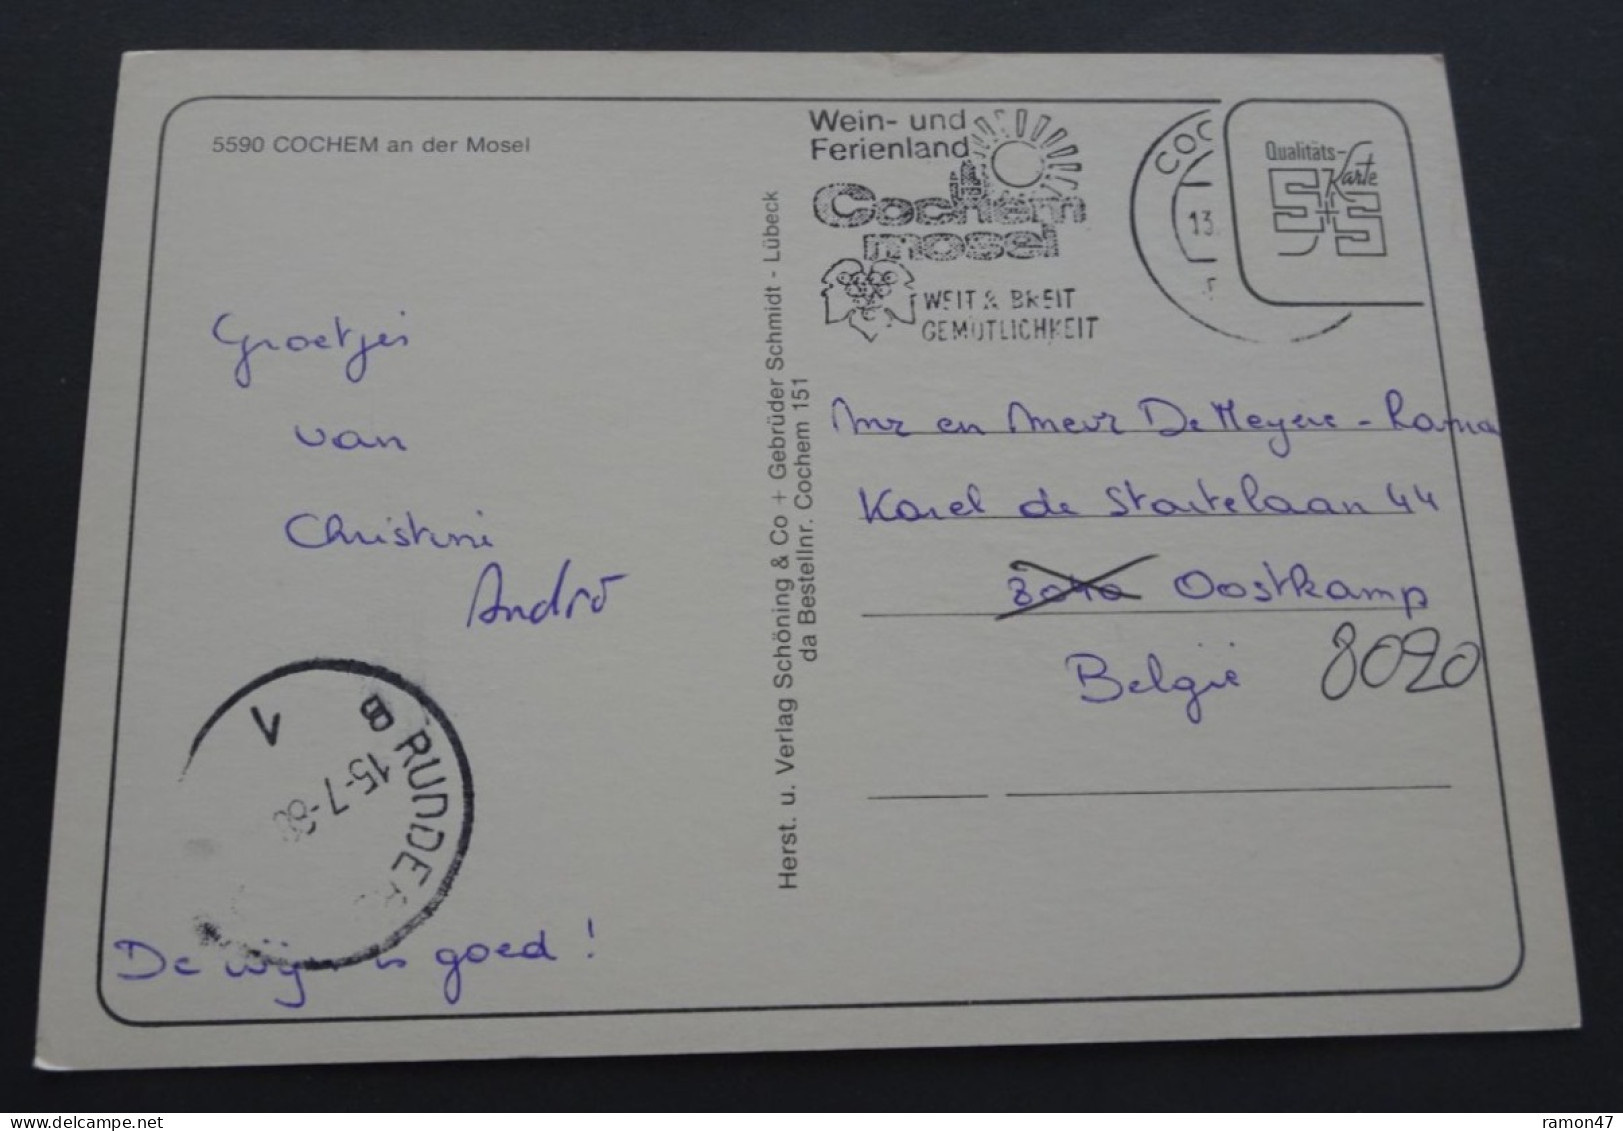 5590 COCHEM an der Mosel
Groetjes
van
Christine
André
8 RUDDE
15-7-8
1
De wijn is goed !
Herst. u. Verlag Schöning & Co + Gebrüder Schmidt - Lübeck
da Bestellnr. Cochem 151
Wein- und
Ferienland
Cochem
mosel
WEIT & BREIT
GEMÜTLICHKEIT
COC
13.
Qualitäts-
Karte
S+S
Mr en Mevr De Meyere - Roma
Karel de Stoutelaan 44
Oostkamp
België 8020
ramon47